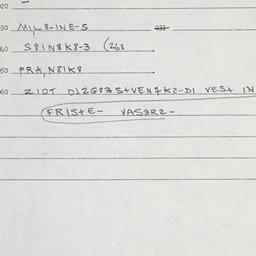 020
030 MIL8-INE-S 033
040 S8IN8K8-3 (268
050 PRA, N8IK8
060 ZIDT D1ZG83 S+VEN7KZ-DI VES+ IN
(FRIS+E- VAS3RZ-